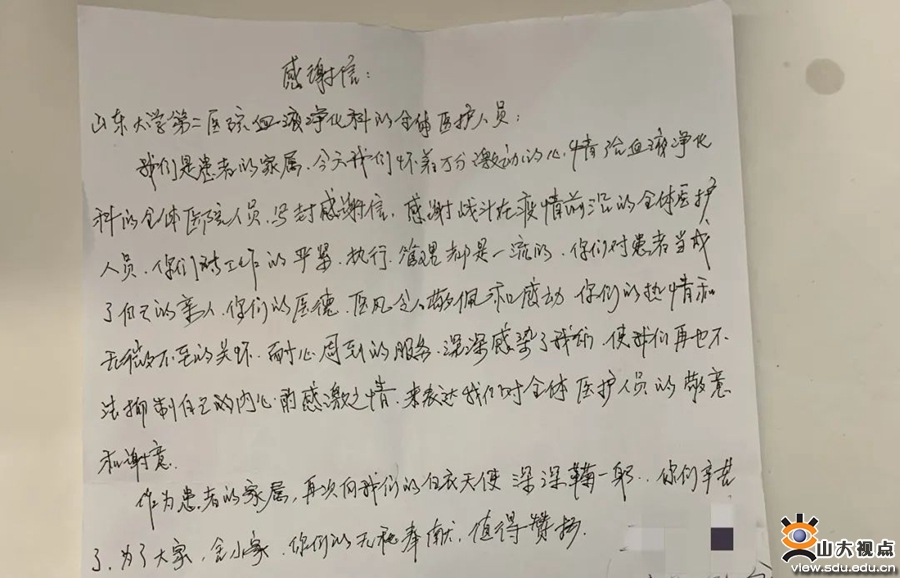 感谢信：
山东大学第二医院血液净化科的全体医护人员：
我们是患者的家属，今天我们怀着万分激动的心情给血液净化
科的全体医院人员，写封感谢信，感谢战斗在疫情前沿的全体医护
人员，你们对工作的严紧，执行，管理都是一流的，你们对患者当成
了自己的亲人，你们的医德，医风令人敬佩和感动，你们的热情和
无微不至的关怀，耐心周到的服务，深深感染了我们，使我们再也不
法抑制自己的内心的感激之情，来表达我们对全体医护人员的敬意
和谢意.
作为患者的家属，再次向我们的白衣天使深深鞠一躬..你们辛苦
了，为了大家，舍小家，你们的无私奉献，值得赞扬.
山大视点
view.sdu.edu.cn